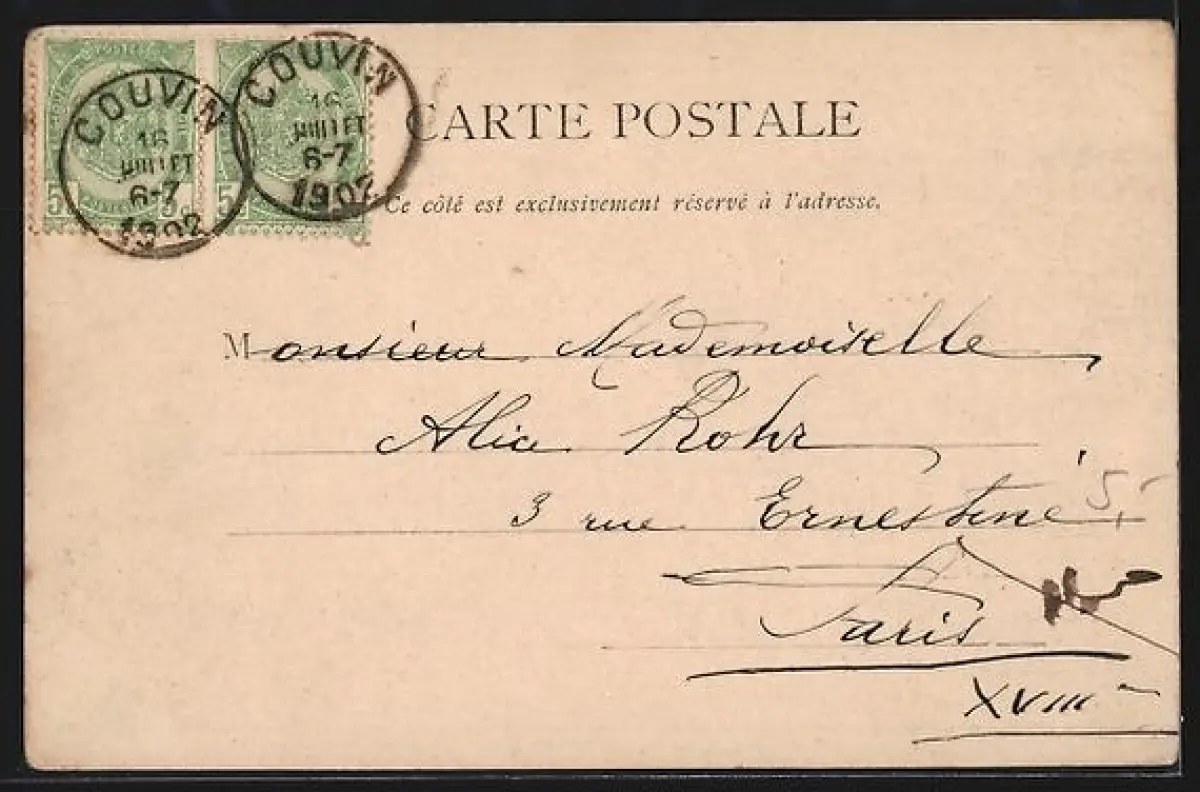 COUVIN
16
JUILLET
6-7
1902
COUVIN
16
JUILLET
6-7
1902
5
5
CARTE POSTALE
Ce côté est exclusivement réservé à l'adresse.
Monsieur Mademoiselle
Alice Rohr
3 rue Ernestine
Paris
XVIII